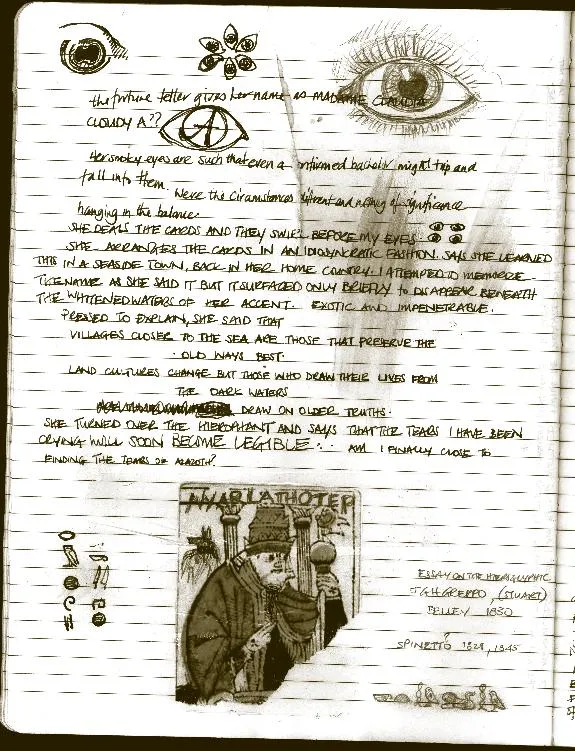 the fortune teller gives her name as MADAME CLAUDIA
CLOUDY A??
Her smoky eyes are such that even a confirmed bachelor might trip and
fall into them. Were the circumstances different and nothing of significance
hanging in the balance.
SHE DEALS THE CARDS AND THEY SWIRL BEFORE MY EYES.
SHE ARRANGES THE CARDS IN AN IDIOSYNCRATIC FASHION. SAYS SHE LEARNED
THIS IN A SEASIDE TOWN, BACK IN HER HOME COUNTRY. I ATTEMPTED TO MEMORIZE
THE NAME AS SHE SAID IT BUT IT SURFACED ONLY BRIEFLY to DISAPPEAR BENEATH
THE WHITENED WATERS OF HER ACCENT. EXOTIC AND IMPENETRABLE.
PRESSED TO EXPLAIN, SHE SAID THAT
VILLAGES CLOSER TO THE SEA ARE THOSE THAT PRESERVE THE
OLD WAYS BEST.
LAND CULTURES CHANGE BUT THOSE WHO DRAW THEIR LIVES FROM
THE DARK WATERS
DRAW ON OLDER TRUTHS.
SHE TURNED OVER THE HIEROPHANT AND SAYS THAT THE TEARS I HAVE BEEN
CRYING WILL SOON BECOME LEGIBLE... AM I FINALLY CLOSE TO
FINDING THE TEARS OF AZAZOTH?
NYARLATHOTEP
ESSAY ON THE HIEROGLYPHIC
J G H GREPPO, (STUART)
1830
SPINETTO 1828, 1845